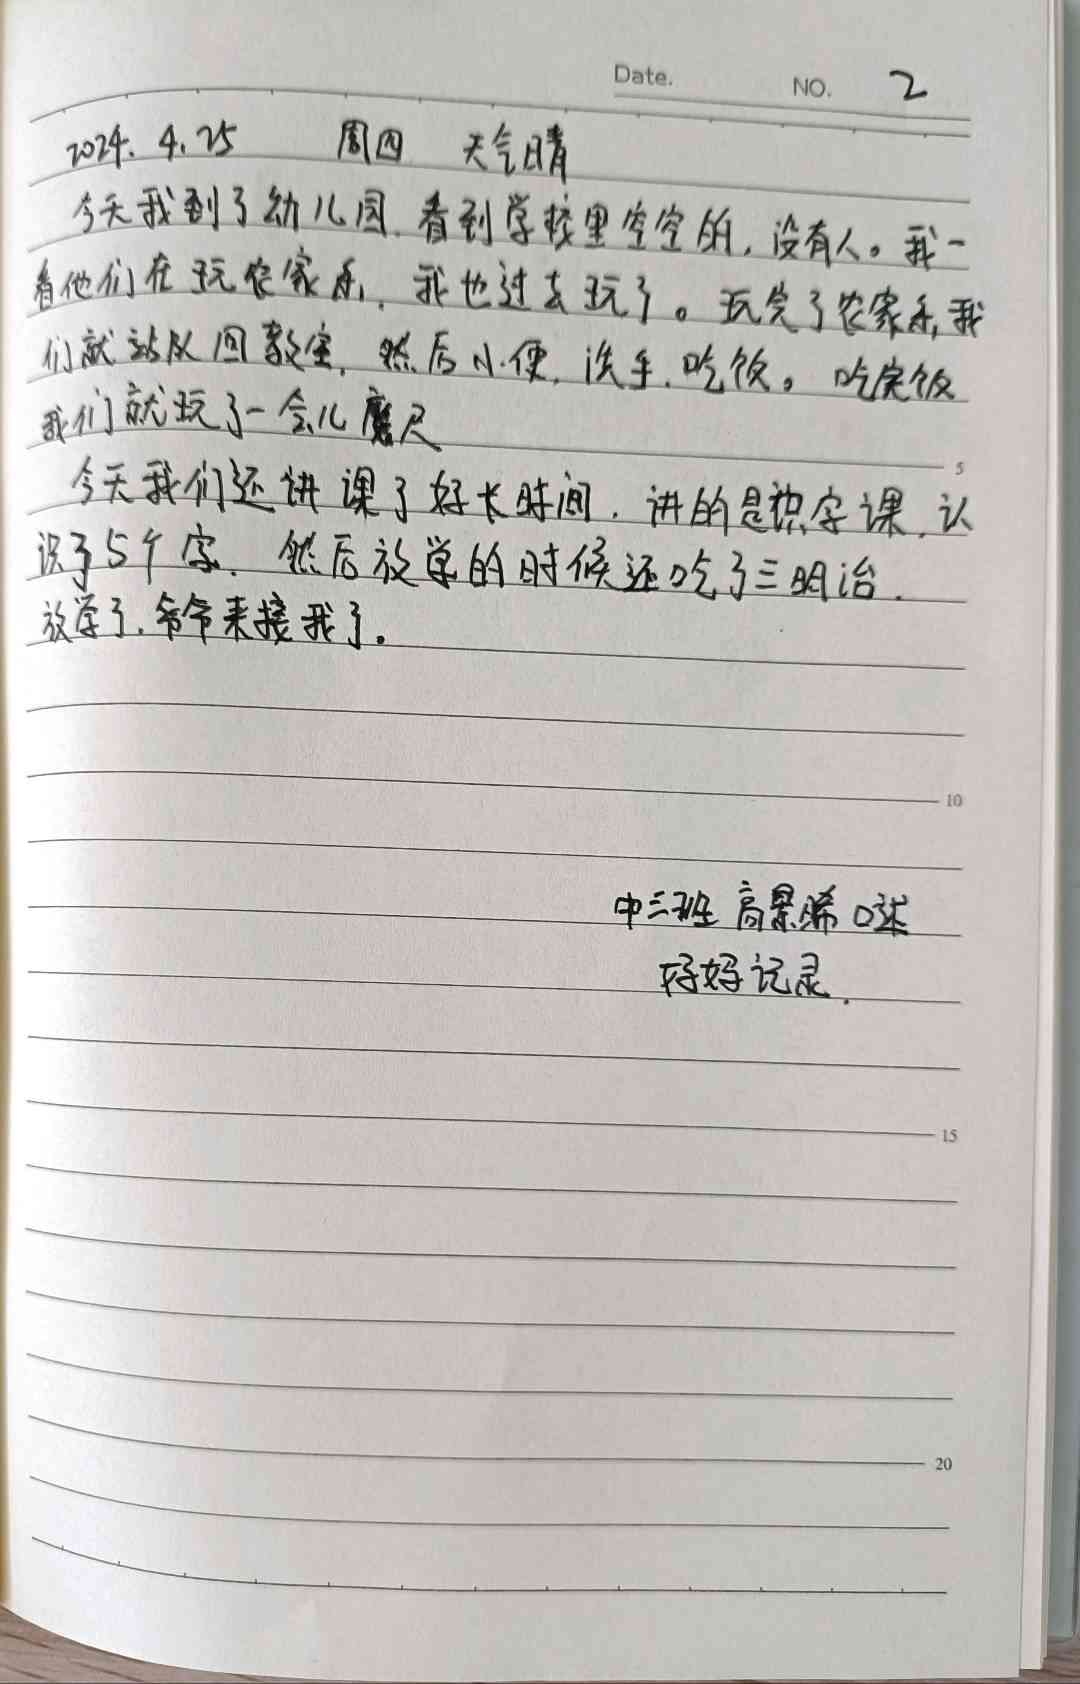 Date. NO. 2
2024. 4. 25 周四 天气晴
今天我到了幼儿园.看到学校里空空的,没有人。我一
看他们在玩农家乐,我也过去玩了。玩完了农家乐,我
们就站队回教室,然后小便,洗手.吃饭。吃完饭
我们就玩了一会儿魔尺 5
今天我们还讲课了好长时间.讲的是识字课.认
识了5个字.然后放学的时候还吃了三明治.
放学了.爷爷来接我了。
10
中三班 高景烯 口述
好好记录.
15
20